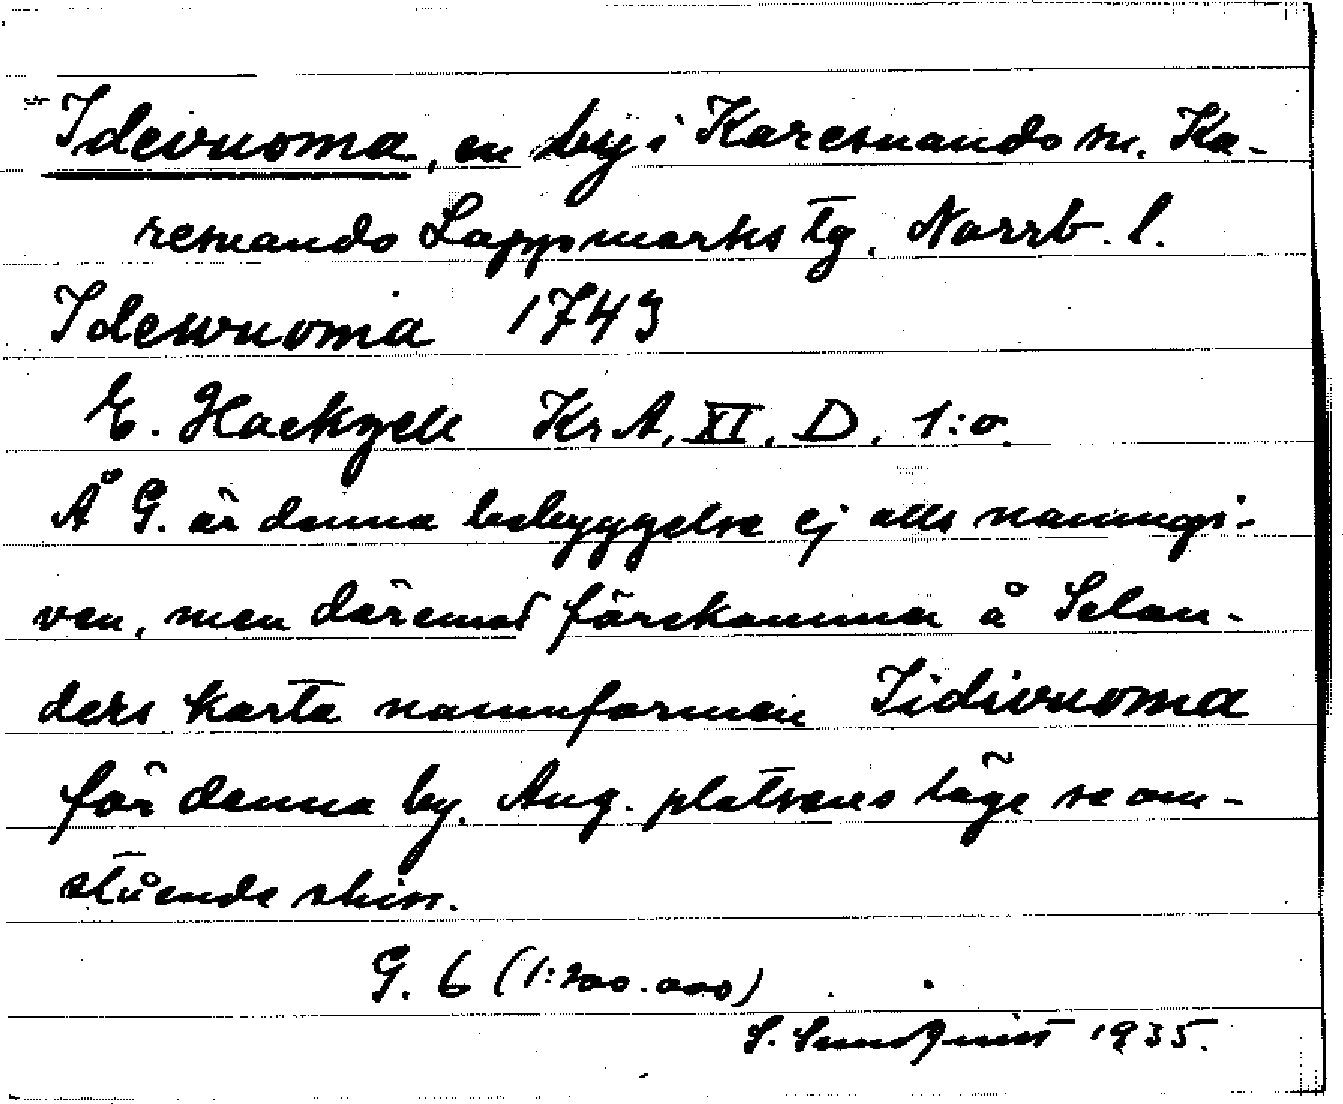 Idevuoma, en by i Karesuando sn. Ka-
resuando Lappmarks tg. Norrb. l.
Idewuoma 1743
E. Hackzell KrA. XI. D. 1:a.
Å G. är denna bebyggelse ej alls namngi-
ven, men däremot förekommer å Selan-
ders karta namnformen Iidivuoma
för denna by. Ang. platsens läge se om-
stående skiss.
G. 6 (1:200.000)
S. Sundquist 1935.